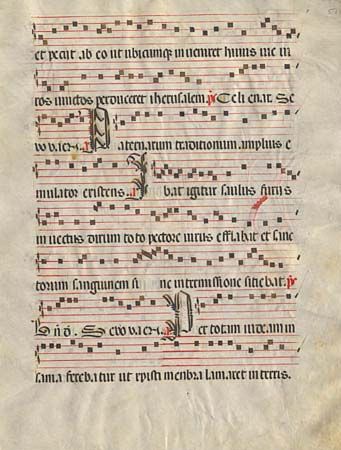 et peciit ab eo ut ubicumque inveniret huius vie vi
ros vinctos perduceret iherusalem. Celi enar. Se
vovae. Paternarum traditionum amplius e
mulator existens. Ibat igitur saulus furiis
invectus dirum toto pectore virus efflabat et sanc
torum sanguinem si ne intermissione sitiebat.
Sevovae. Per totam iudeam in
sania ferebatur ut xpisti menbra laniaret in terris.